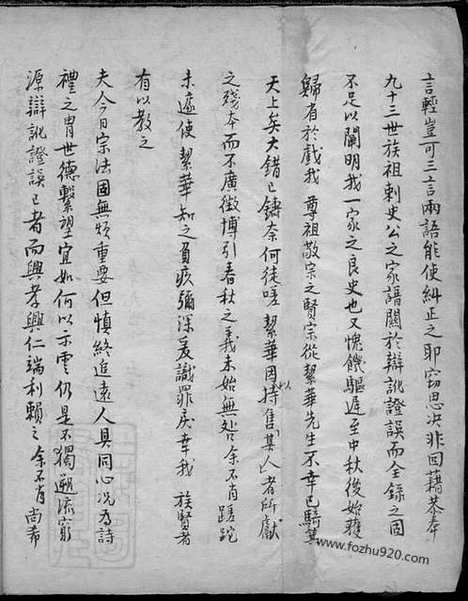 言輕豈可三言兩語能使糾正之耶竊思決非因藉恭奉
九十三世族祖刺史公之家譜關於辯訛證誤而全錄之固
不足以闡明我一家之良史也又愧饑驅遲至中秋後始獲
歸省於戲我 尊祖敬宗之賢宗從絜華先生不幸已騎箕
天上矣大錯已鑄奈何徒嗟絜華因持以售其人者所獻
之殘本而不廣徵博引春秋之義未始無咎余不肖蹉跎
未遑使絜華知之負疚彌深爰識罪戾幸我 族賢者
有以教之
夫今日宗法固無煩重要但慎終追遠人具同心况為詩
禮之胄世德繫望宜如何以示雲仍是不獨遡流窮
源辯訛證誤已者而興孝興仁端利賴之余不肖尚希
www.fozhu920.com